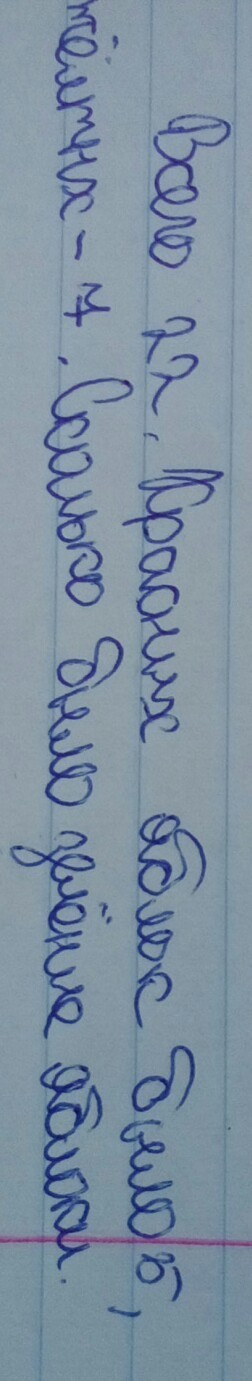 Всего 22. Красных яблок было 5,
жёлтых - 7. Сколько было зелёные яблоки.